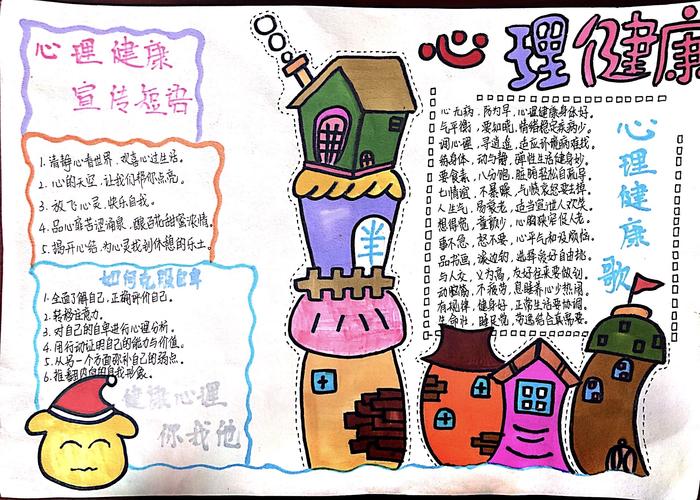 心理健康
心理健康
宣传短语
1.清静心看世界，欢喜心过生活。
2.心的天空，让我们帮你点亮。
3.放飞心灵，快乐自我。
4.品心扉苦涩涌泉，酿百花甜蜜浓情。
5.揭开心结，为心灵找到休憩的乐土
如何克服自卑
1.全面了解自己，正确评价自己。
2.转移注意力。
3.对自己的自卑进行心理分析。
4.用行动证明自己的能力与价值。
5.从另一个方面弥补自己的弱点。
6.推翻内向的自我形象。
健康心理
你我他
心理健康歌
心无病，防为早，心理健康身体好。
气平衡，要知晓，情绪稳定疾病少。
调心理，寻逍遥，适应环境病难找。
练身体，动与静，弹性生活健身妙。
要食素，八分饱，脏腑轻松自疏导
七情宜，不暴躁，气愤哀怒要去掉
人生气，易衰老，适当宣泄人欢笑
想得宽，童颜少，心胸狭窄促人老。
事不急，怒不要，心平气和没烦恼。
品书画，溪边钓，选择爱好自由挑。
与人友，义为高，友好往来要做到。
动脑筋，不疲劳，息睡养心少热闹。
有规律，健身好，正常生活要协调。
生命壮，睡足觉，劳逸结合真需要。